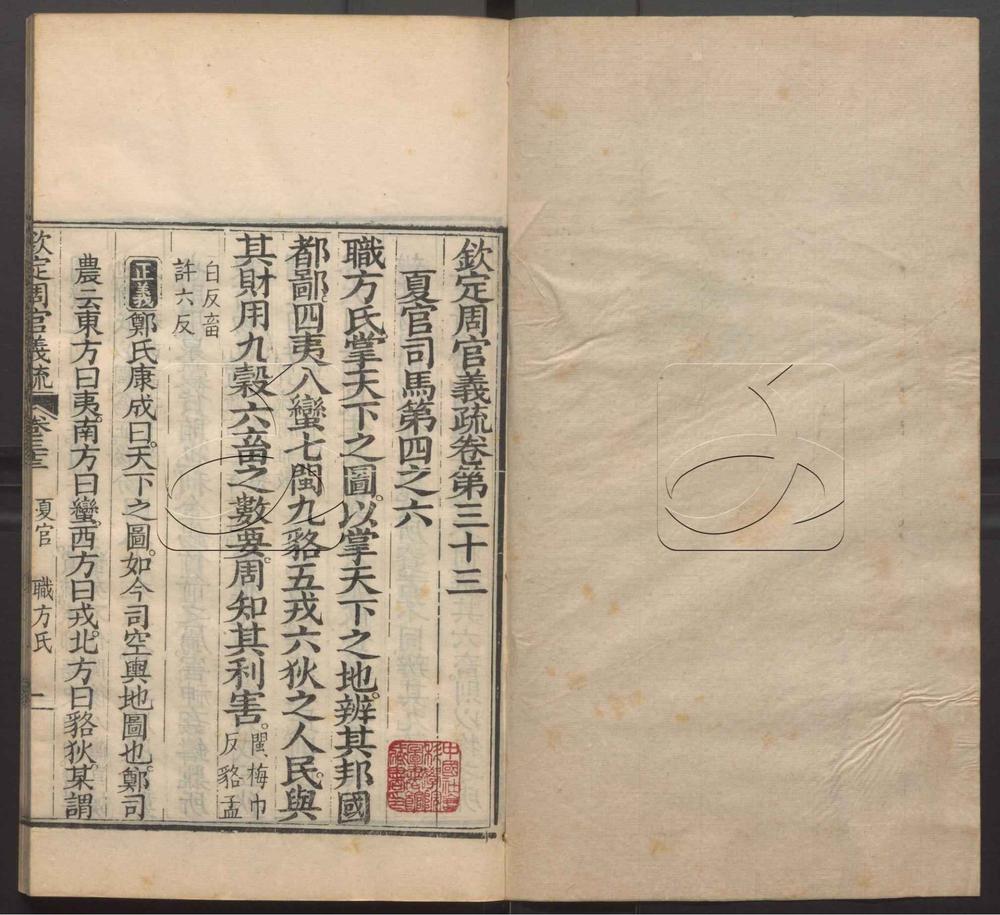 欽定周官義疏卷第三十三
夏官司馬第四之六
職方氏掌天下之圖以掌天下之地辨其邦國
都鄙四夷八蠻七閩九貉五戎六狄之人民與
其財用九穀六畜之數要周知其利害閩梅巾
反貉孟
白反畜
許六反
正義鄭氏康成曰天下之圖如今司空輿地圖也鄭司
農云東方曰夷南方曰蠻西方曰戎北方曰貉狄某謂
欽定周官義疏 卷三十三 夏官 職方氏 一